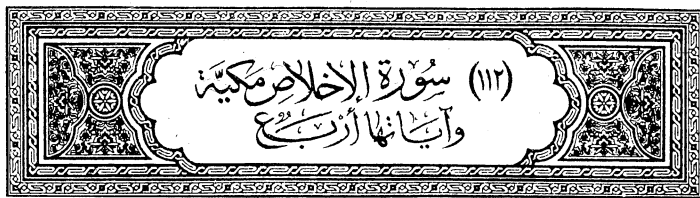 (١١٢) سُورَة الإِخْلَاصِ مَكيَّة
وَآيَاتها أَرْبَع